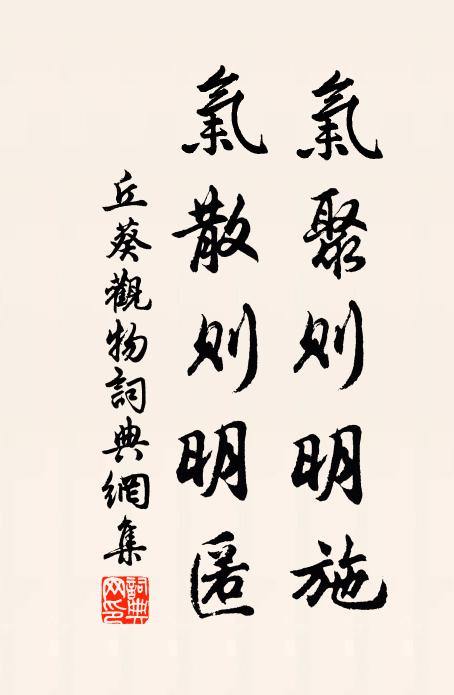 氣聚則明施
氣散則明匿
丘葵觀物詞典網集
詞典
网印